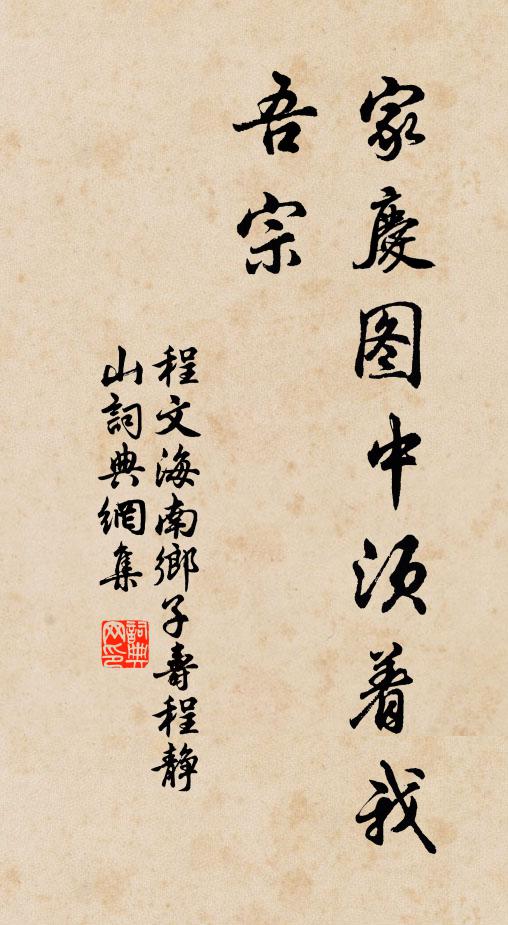 家慶图中须着我
吾宗
程文海南鄉子壽程静
山詞典網集
詞典
网印